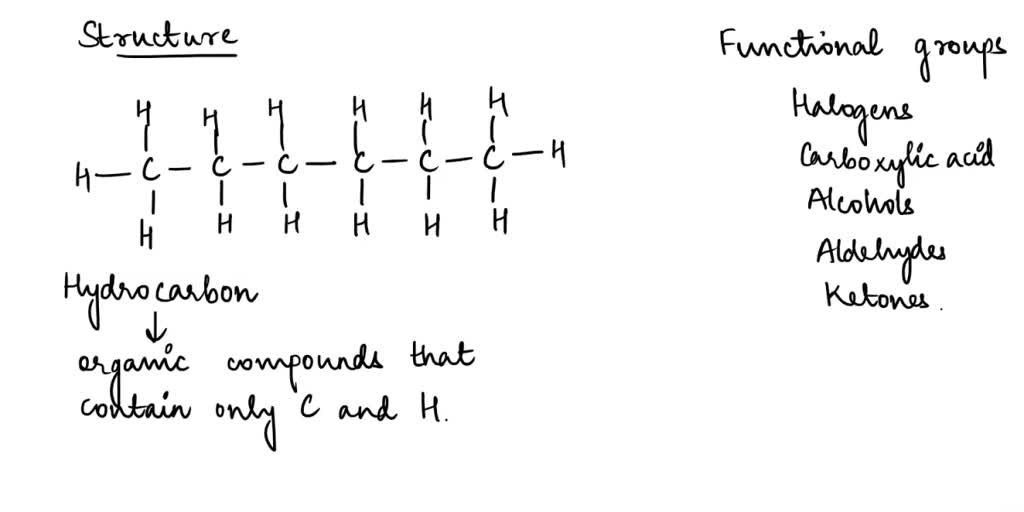 Structure
H H H H H H
H – C – C – C – C – C – C – H
H H H H H H
Hydrocarbon
↓
organic compounds that
contain only C and H.
Functional groups
Halogens
Carboxylic acid
Alcohols
Aldehydes
Ketones.